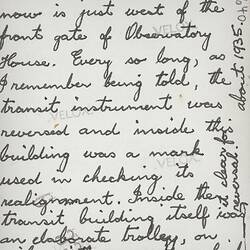 now is just west of the
front gate of Observatory
House. Every so long, as
I remember being told, the
transit instrument was
reversed and inside this
building was a mark
used in checking its
realignment. Inside the
transit building itself was
an elaborate trolley, on
VELOX
VELOX
VELOX
VELOX
about 1935.
reversal